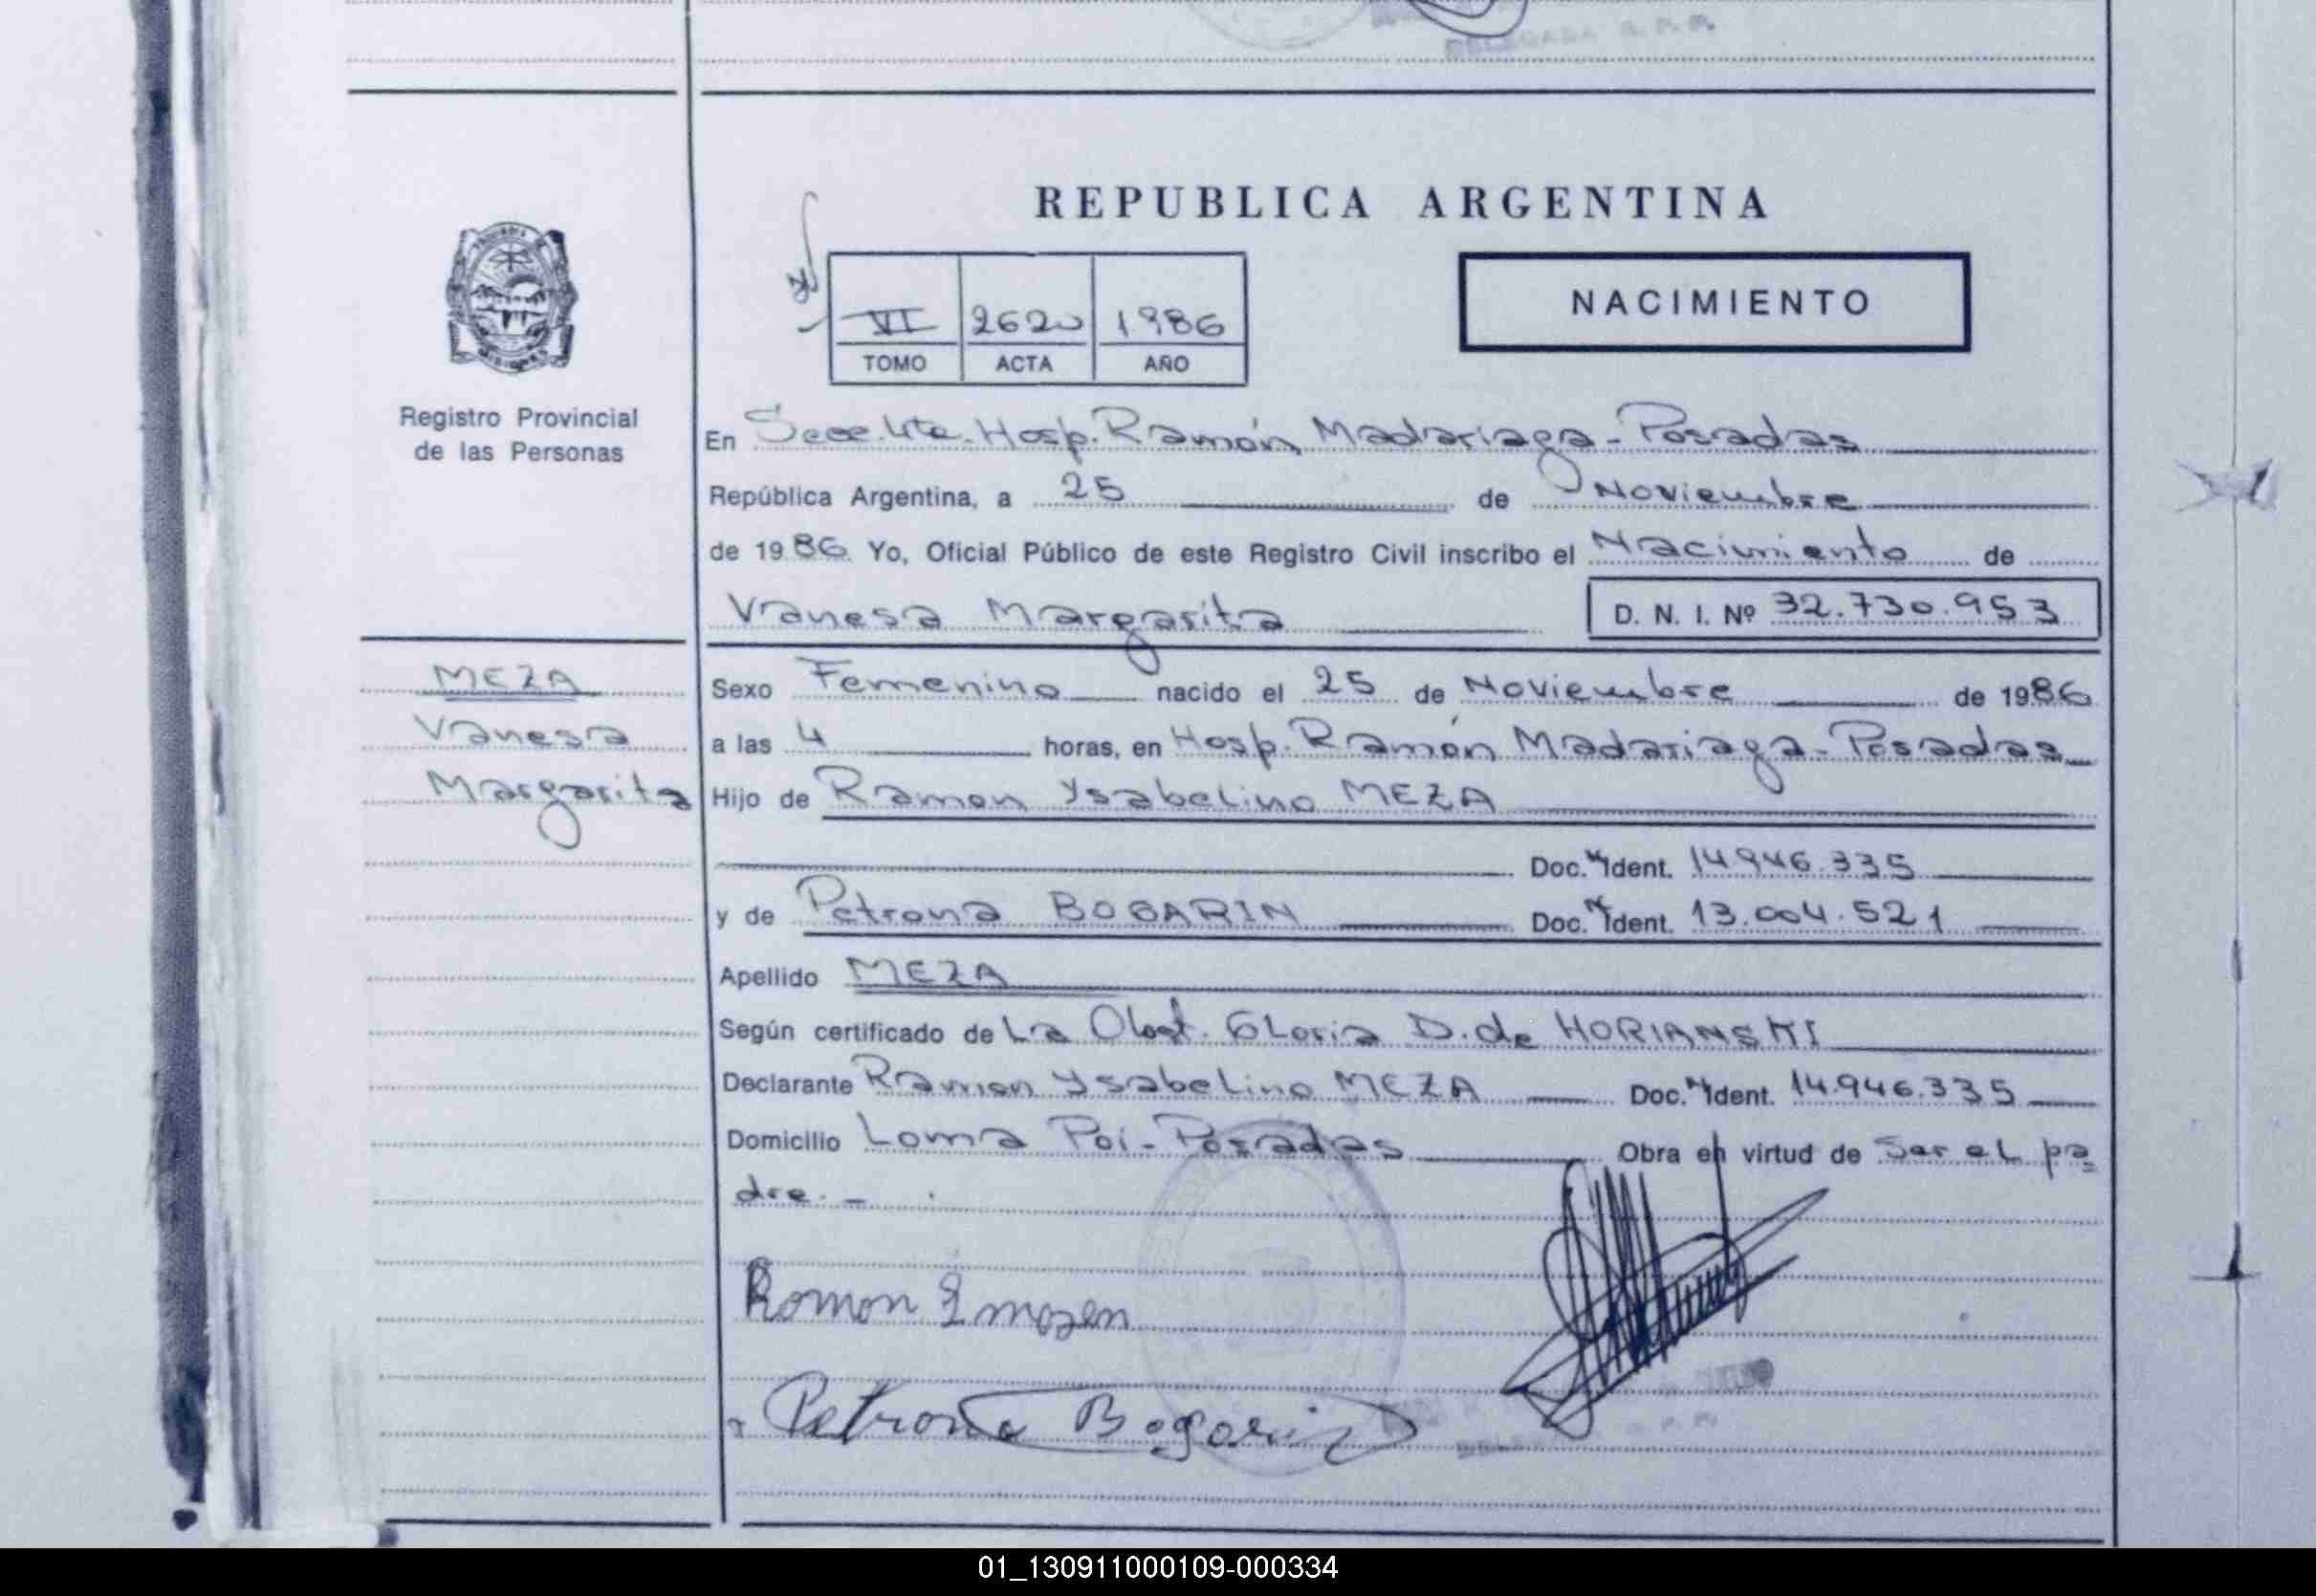 DELEGADA R. P. P.
REPUBLICA ARGENTINA
VI 2620 1986
TOMO ACTA AÑO
NACIMIENTO
Registro Provincial
de las Personas
En Secc. 4ta. Hosp. Ramón Madariaga - Posadas
República Argentina, a 25 de Noviembre
de 1986. Yo, Oficial Público de este Registro Civil inscribo el Nacimiento de
Vanesa Margarita D. N. I. Nº 32.730.953
MEZA
Vanesa
Margarita
Sexo Femenino nacido el 25 de Noviembre de 1986
a las 4 horas, en Hosp. Ramón Madariaga - Posadas
Hijo de Ramon Ysabelino MEZA
Doc. Ident. 14.946.335
y de Petrona BOGARIN Doc. Ident. 13.004.521
Apellido MEZA
Según certificado de La Obst. Gloria D. de HORIANSKI
Declarante Ramon Ysabelino MEZA Doc. Ident. 14.946.335
Domicilio Loma Poi - Posadas Obra en virtud de Ser el pa
dre. -
Romon
Petrona Bogarin
01_130911000109-000334